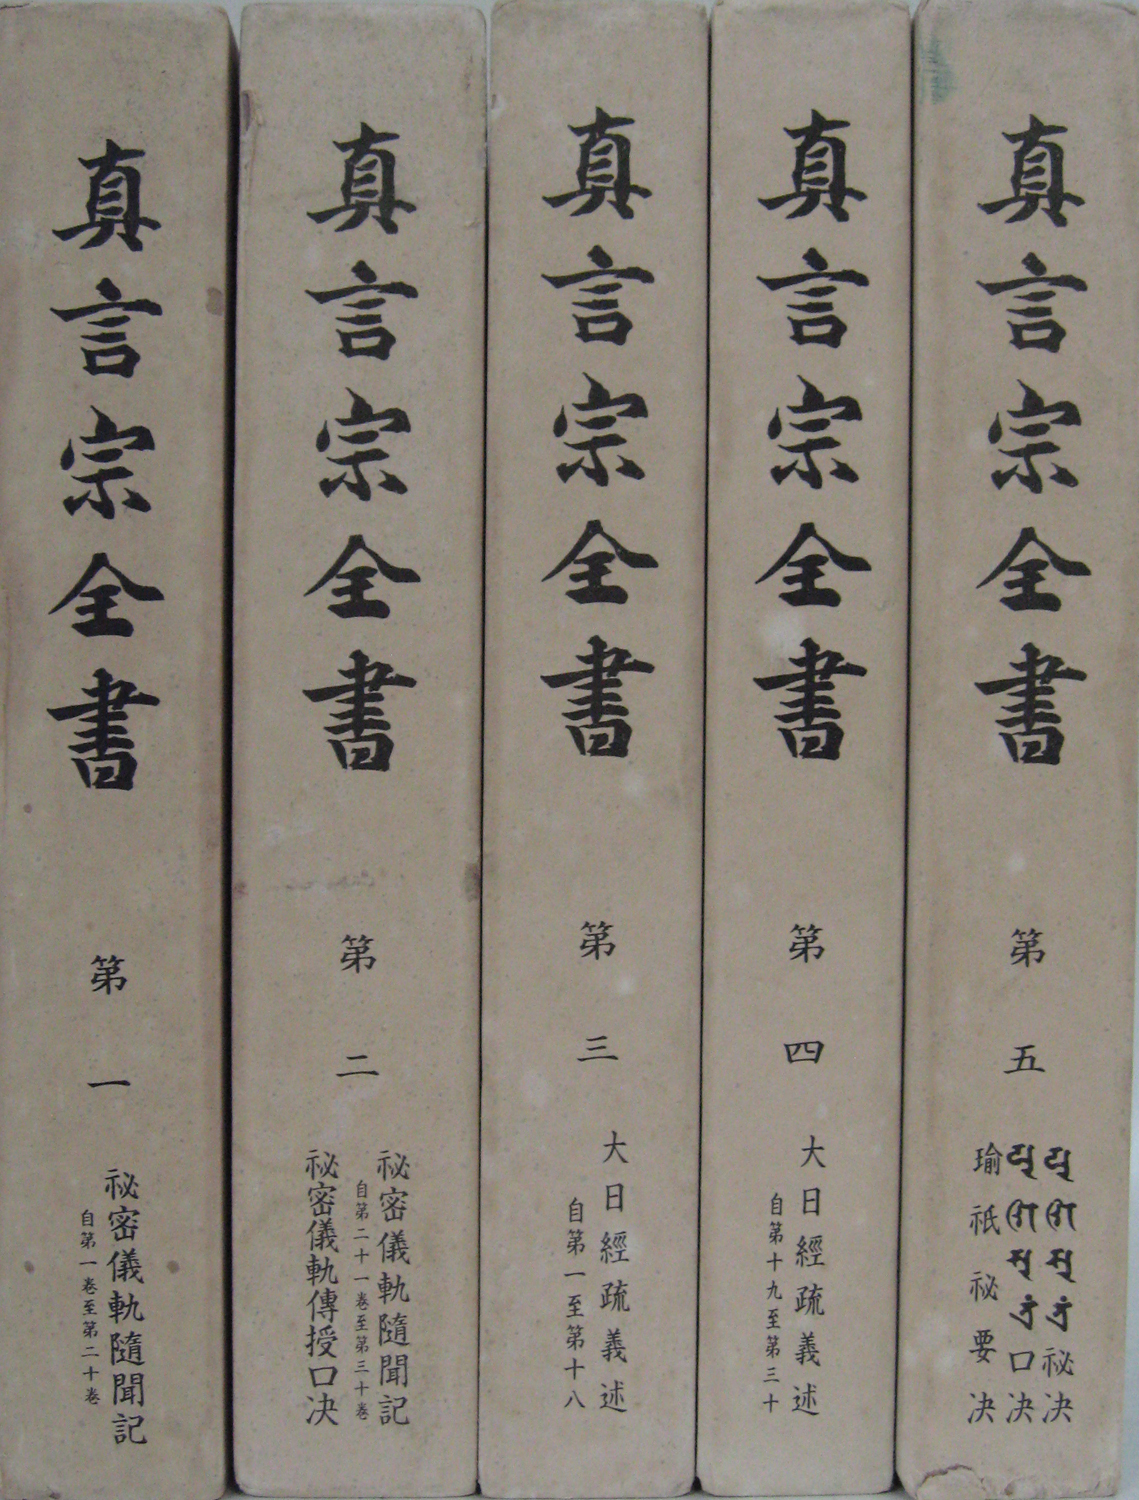 真言宗全書
第一
祕密儀軌隨聞記
自第一卷至第二十卷
真言宗全書
第二
祕密儀軌隨聞記
自第二十一卷至第三十卷
祕密儀軌傳授口决
真言宗全書
第三
大日經疏義述
自第一至第十八
真言宗全書
第四
大日經疏義述
自第十九至第三十
真言宗全書
第五
祕决
口决
瑜祇祕要决